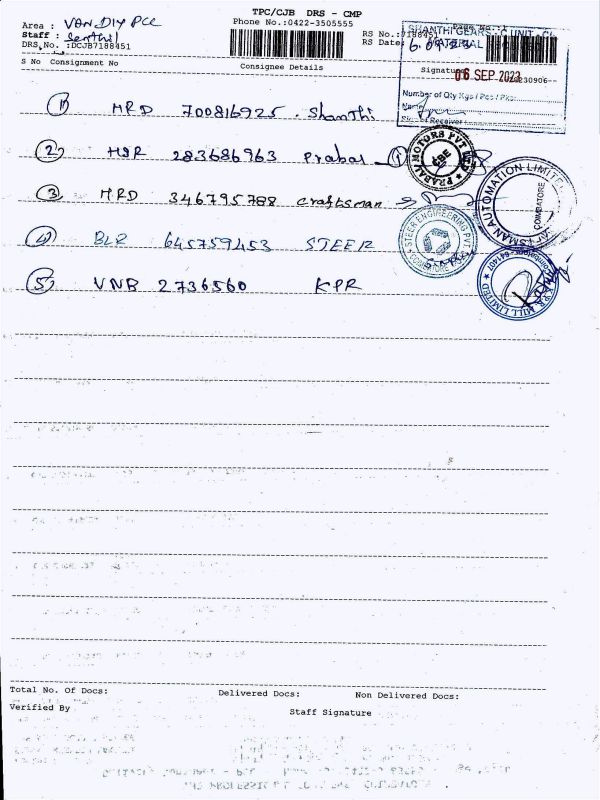 TPC/CJB DRS - CMP
Area : VAN.DIY PCC
Phone No.:0422-3505555
Staff : Senthil
DRS No. :DCJB7188451
RS No.:7188451
RS Date:
S No Consignment No
Consignee Details
Signature
SHANTHI GEARS - C UNIT
MATERIAL
06 SEP 2023
Number of Qty Kgs / Pcs / Pkts
Name
Receiver
1) MRD 700816925 . Shanthi
2) HSR 283686963 Prabal - 1
PRABAL MOTORS PVT LTD
CBE
3) MRD 346795788 Craftsman
CRAFTSMAN AUTOMATION LIMITED
COIMBATORE
4) BLR 645759453 STEER
STEER ENGINEERING PVT
5) VNB 2736560 KPR
K.P.R. MILL LIMITED
Total No. Of Docs:
Delivered Docs:
Non Delivered Docs:
Verified By
Staff Signature